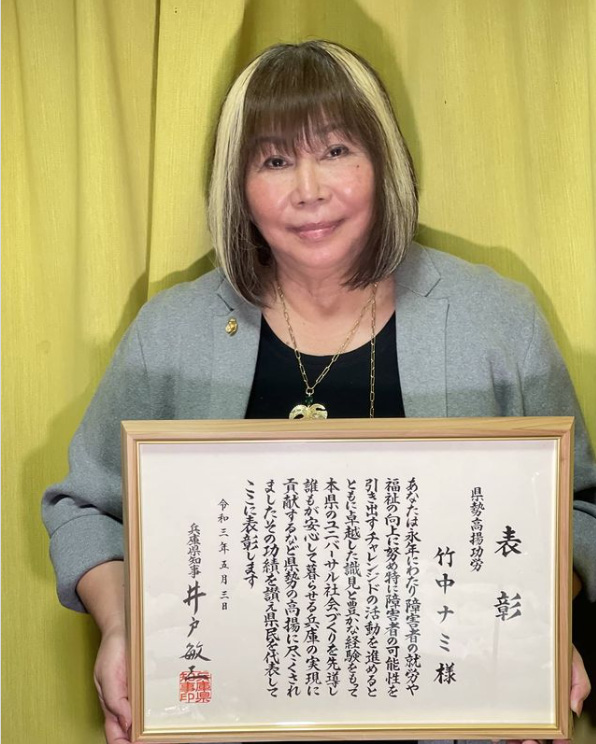 表彰
県勢高揚功労
竹中ナミ様
あなたは永年にわたり障害者の就労や
福祉の向上に努め特に障害者の可能性を
引き出すチャレンジドの活動を進めると
ともに卓越した識見と豊かな経験をもって
本県のユニバーサル社会づくりを先導し
誰もが安心して暮らせる兵庫の実現に
貢献するなど県勢の高揚に尽くされ
ましたその功績を讃え県民を代表して
ここに表彰します
令和三年五月三日
兵庫県知事 井戸敏三
兵庫県
知事印